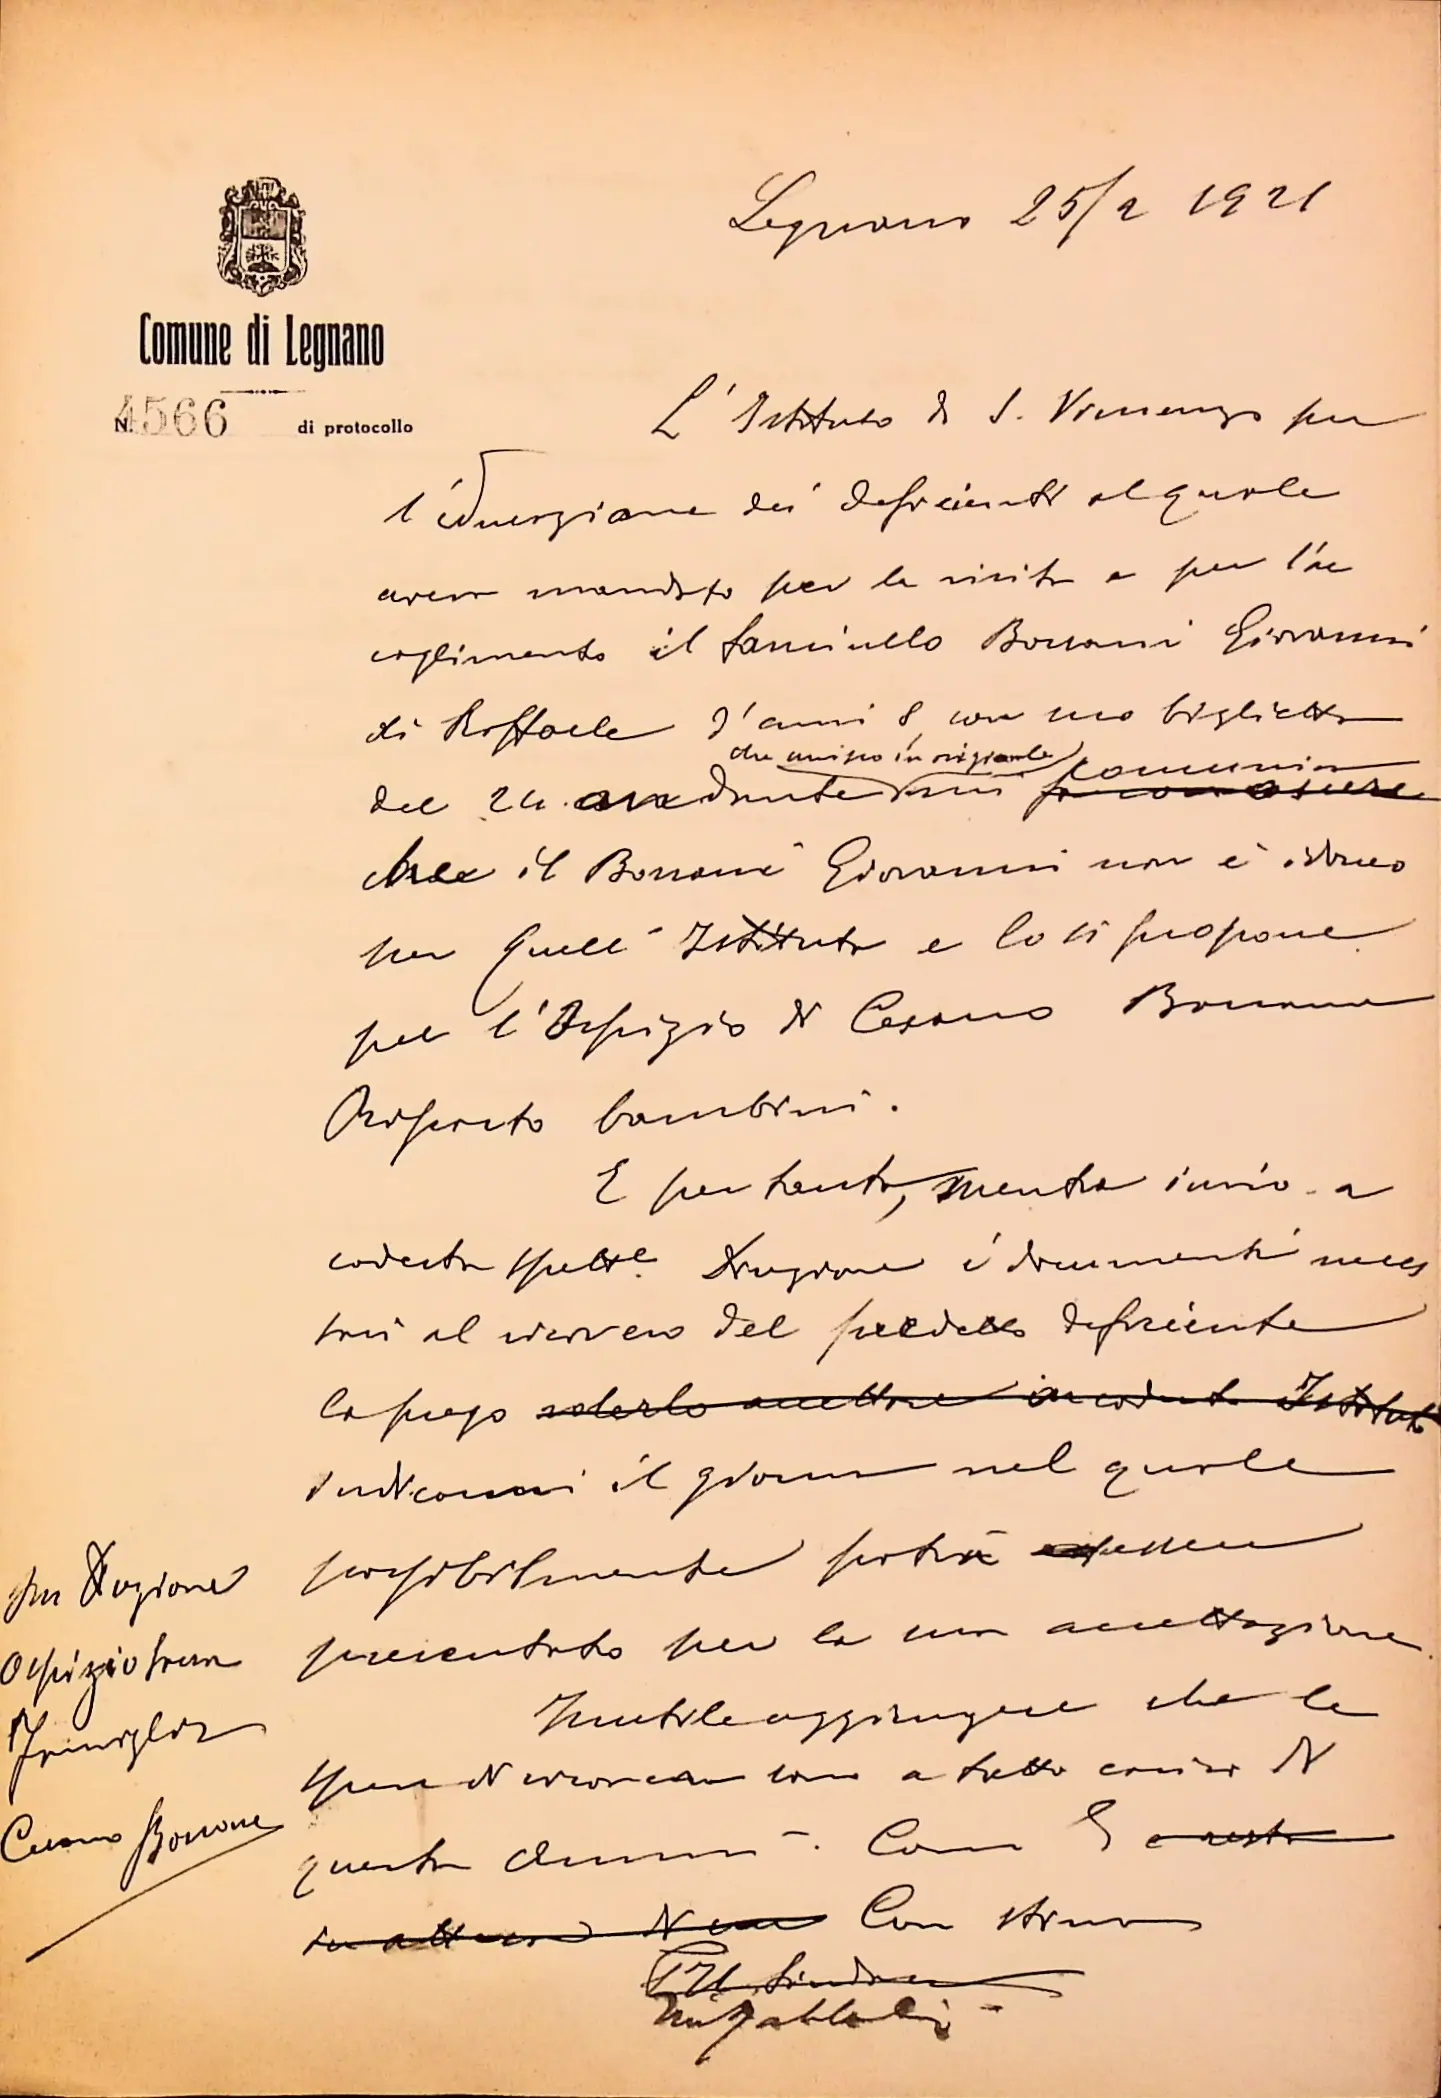 Legnano 25/2 1921
Comune di Legnano
N. 4566 di protocollo
L'Istituto di S. Vincenzo per
l'educazione dei deficienti al quale
avevo mandato per la visita e per l'ac
coglimento il fanciullo Borsani Giovanni
di Raffaele d'anni 8, con suo biglietto
che unisco in originale
del 24 andante mi fa conoscere comunica
che il Borsani Giovanni non è idoneo
per quell'Istituto e lo si propone
per l'Ospizio di Cesano Boscone
Reparto bambini.
E pertanto, mentre invio a
codesta Spett.e Direzione i documenti neces
sari al ricovero del predetto deficiente
la prego volerlo accettare in codesto Istituto
indicarmi il giorno nel quale
possibilmente potrà essere
presentato per la sua accettazione.
Inutile aggiungere che le
spese di ricovero sono a tutto carico di
questa
Con stima
Il Sindaco
Spett. Direzione
Ospizio Sacra
Famiglia
Cesano Boscone